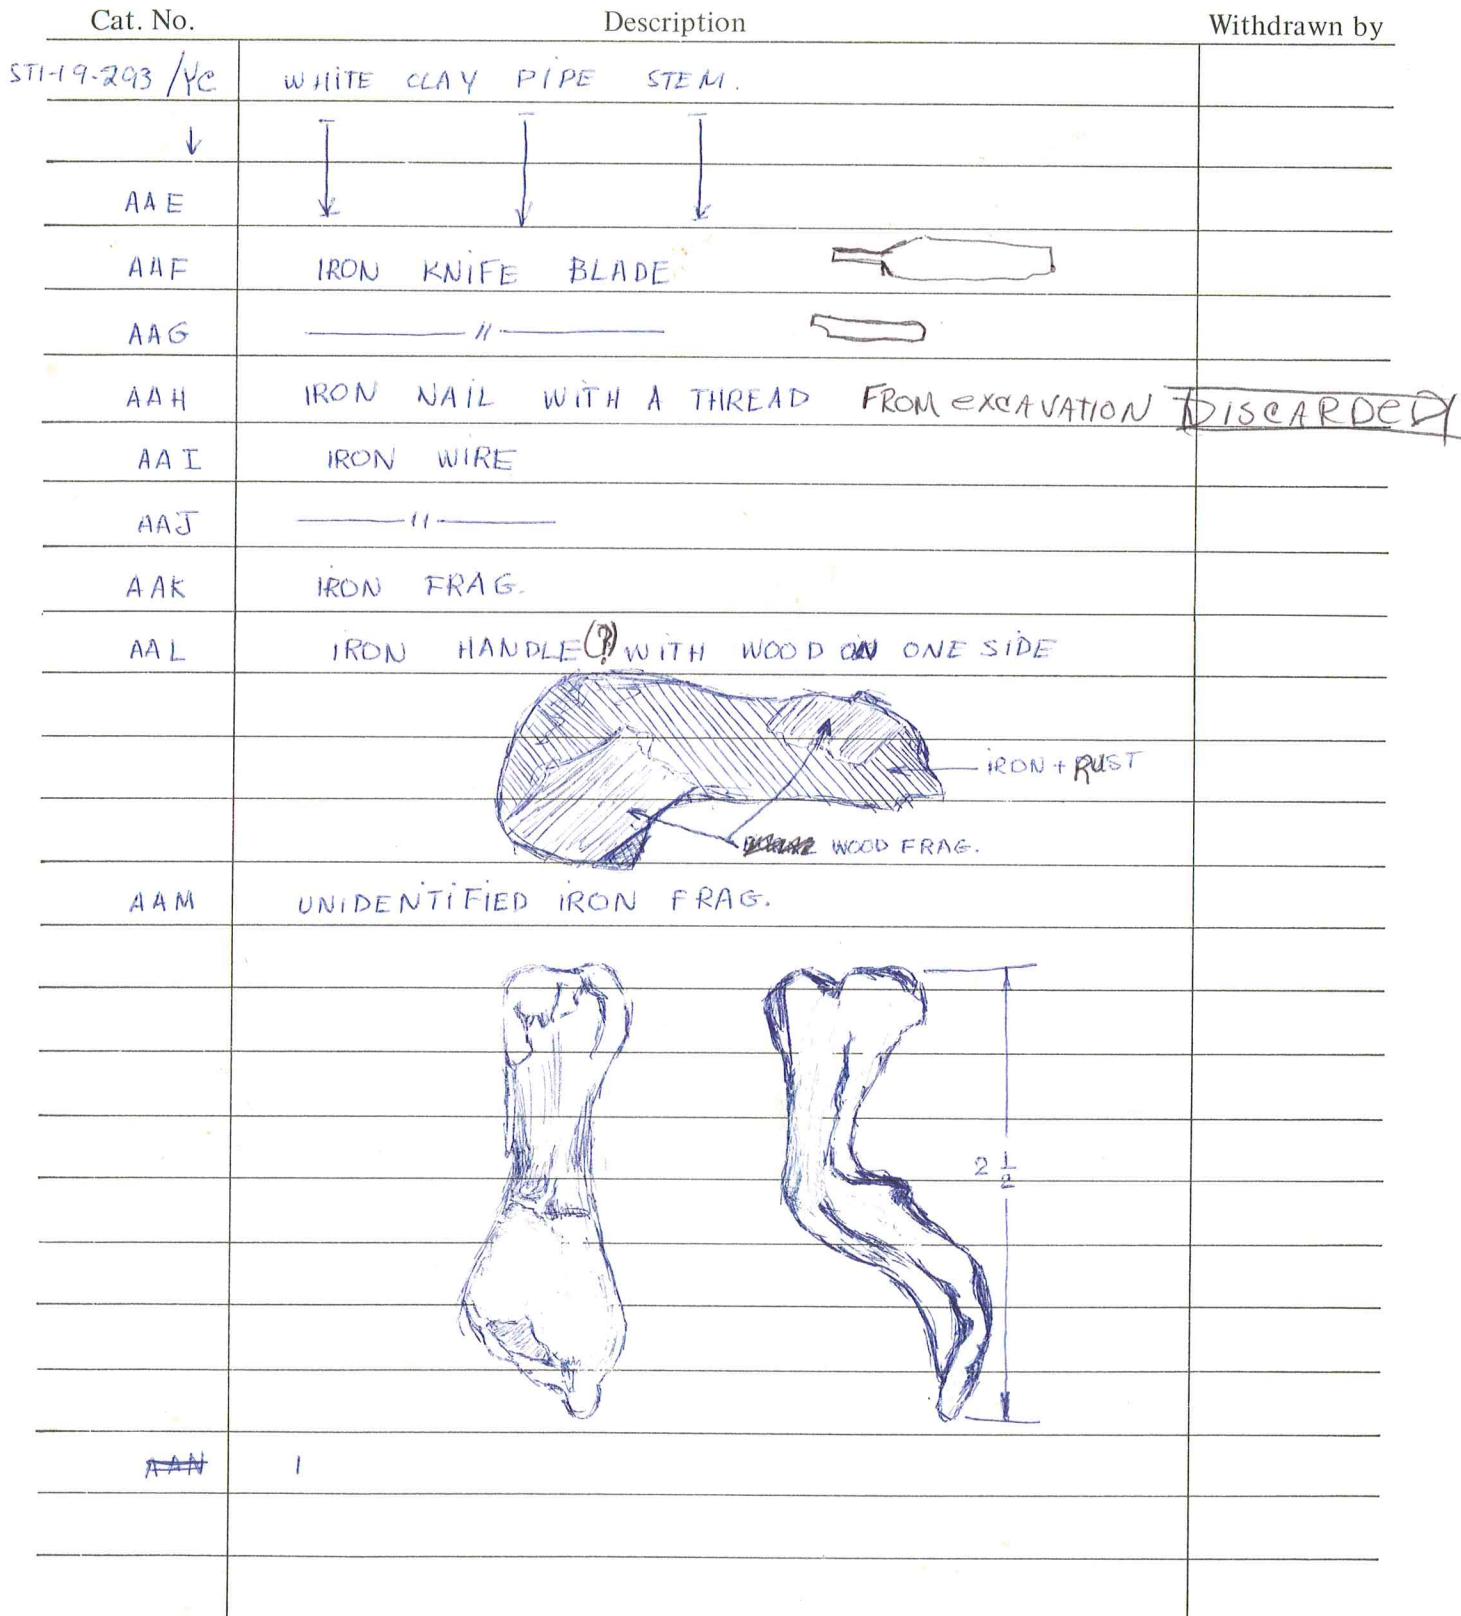 Cat. No. Description Withdrawn by
STI-19-293/YC WHITE CLAY PIPE STEM.
↓
AAE
AAF IRON KNIFE BLADE
AAG —— " ——
AAH IRON NAIL WITH A THREAD FROM EXCAVATION DISCARDED
AAI IRON WIRE
AAJ —— " ——
AAK IRON FRAG.
AAL IRON HANDLE(?) WITH WOOD ON ONE SIDE
IRON + RUST
WOOD FRAG.
AAM UNIDENTIFIED IRON FRAG.
2 1/2
AAN 1